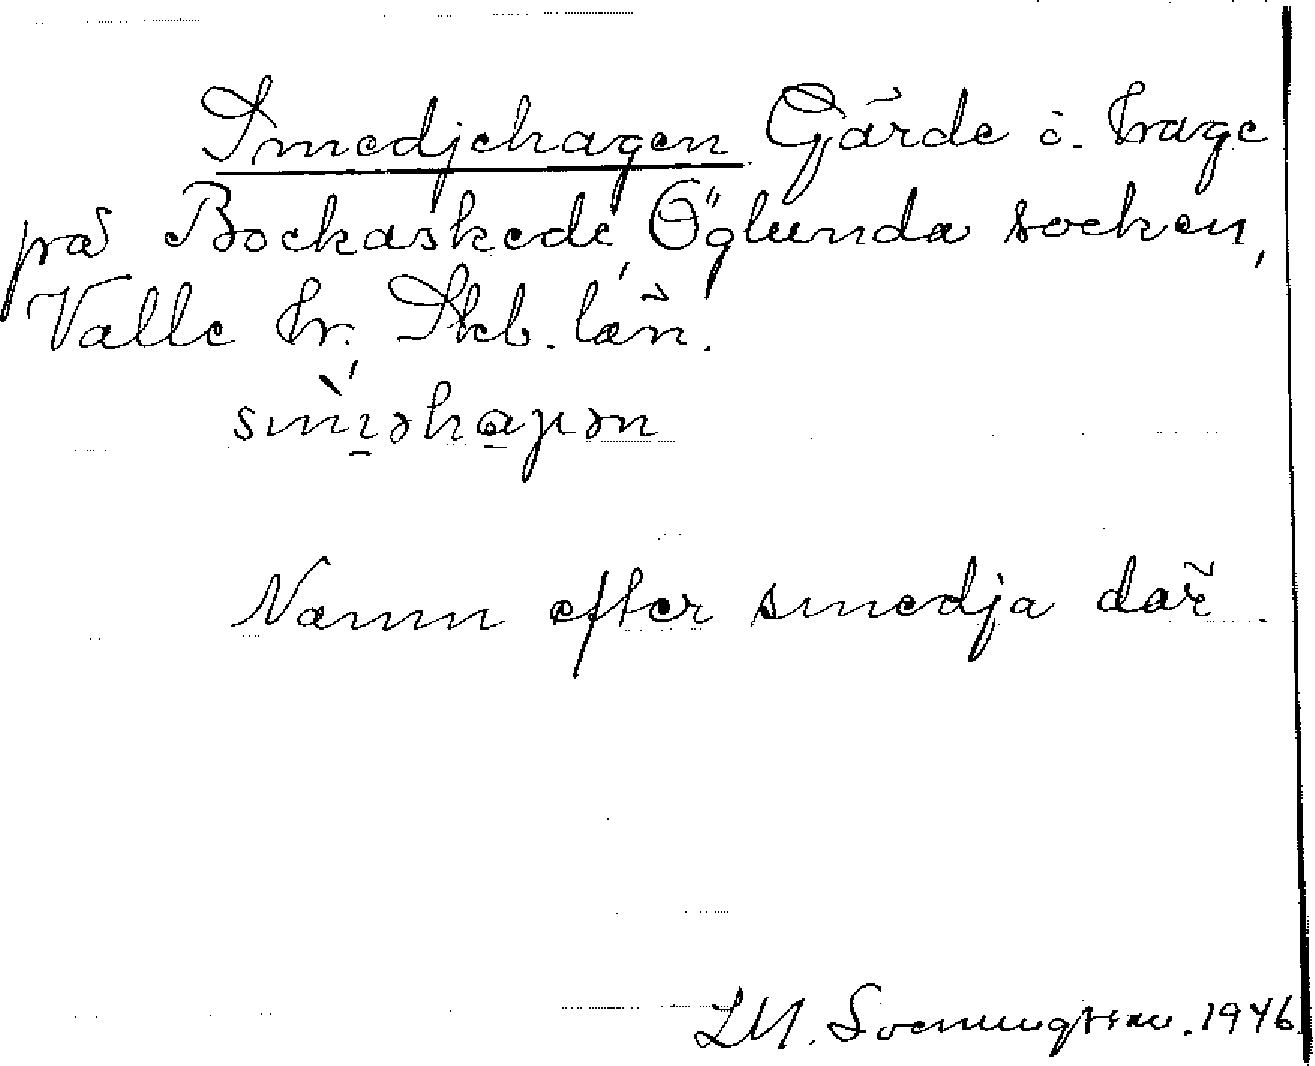 Smedjehagen Gärde i. hage
på Bockaskede, Öglunda socken,
Valle hr., Skb. län.
smìəhaɡən
Namn efter smedja där
LM. Svenungsson. 1946